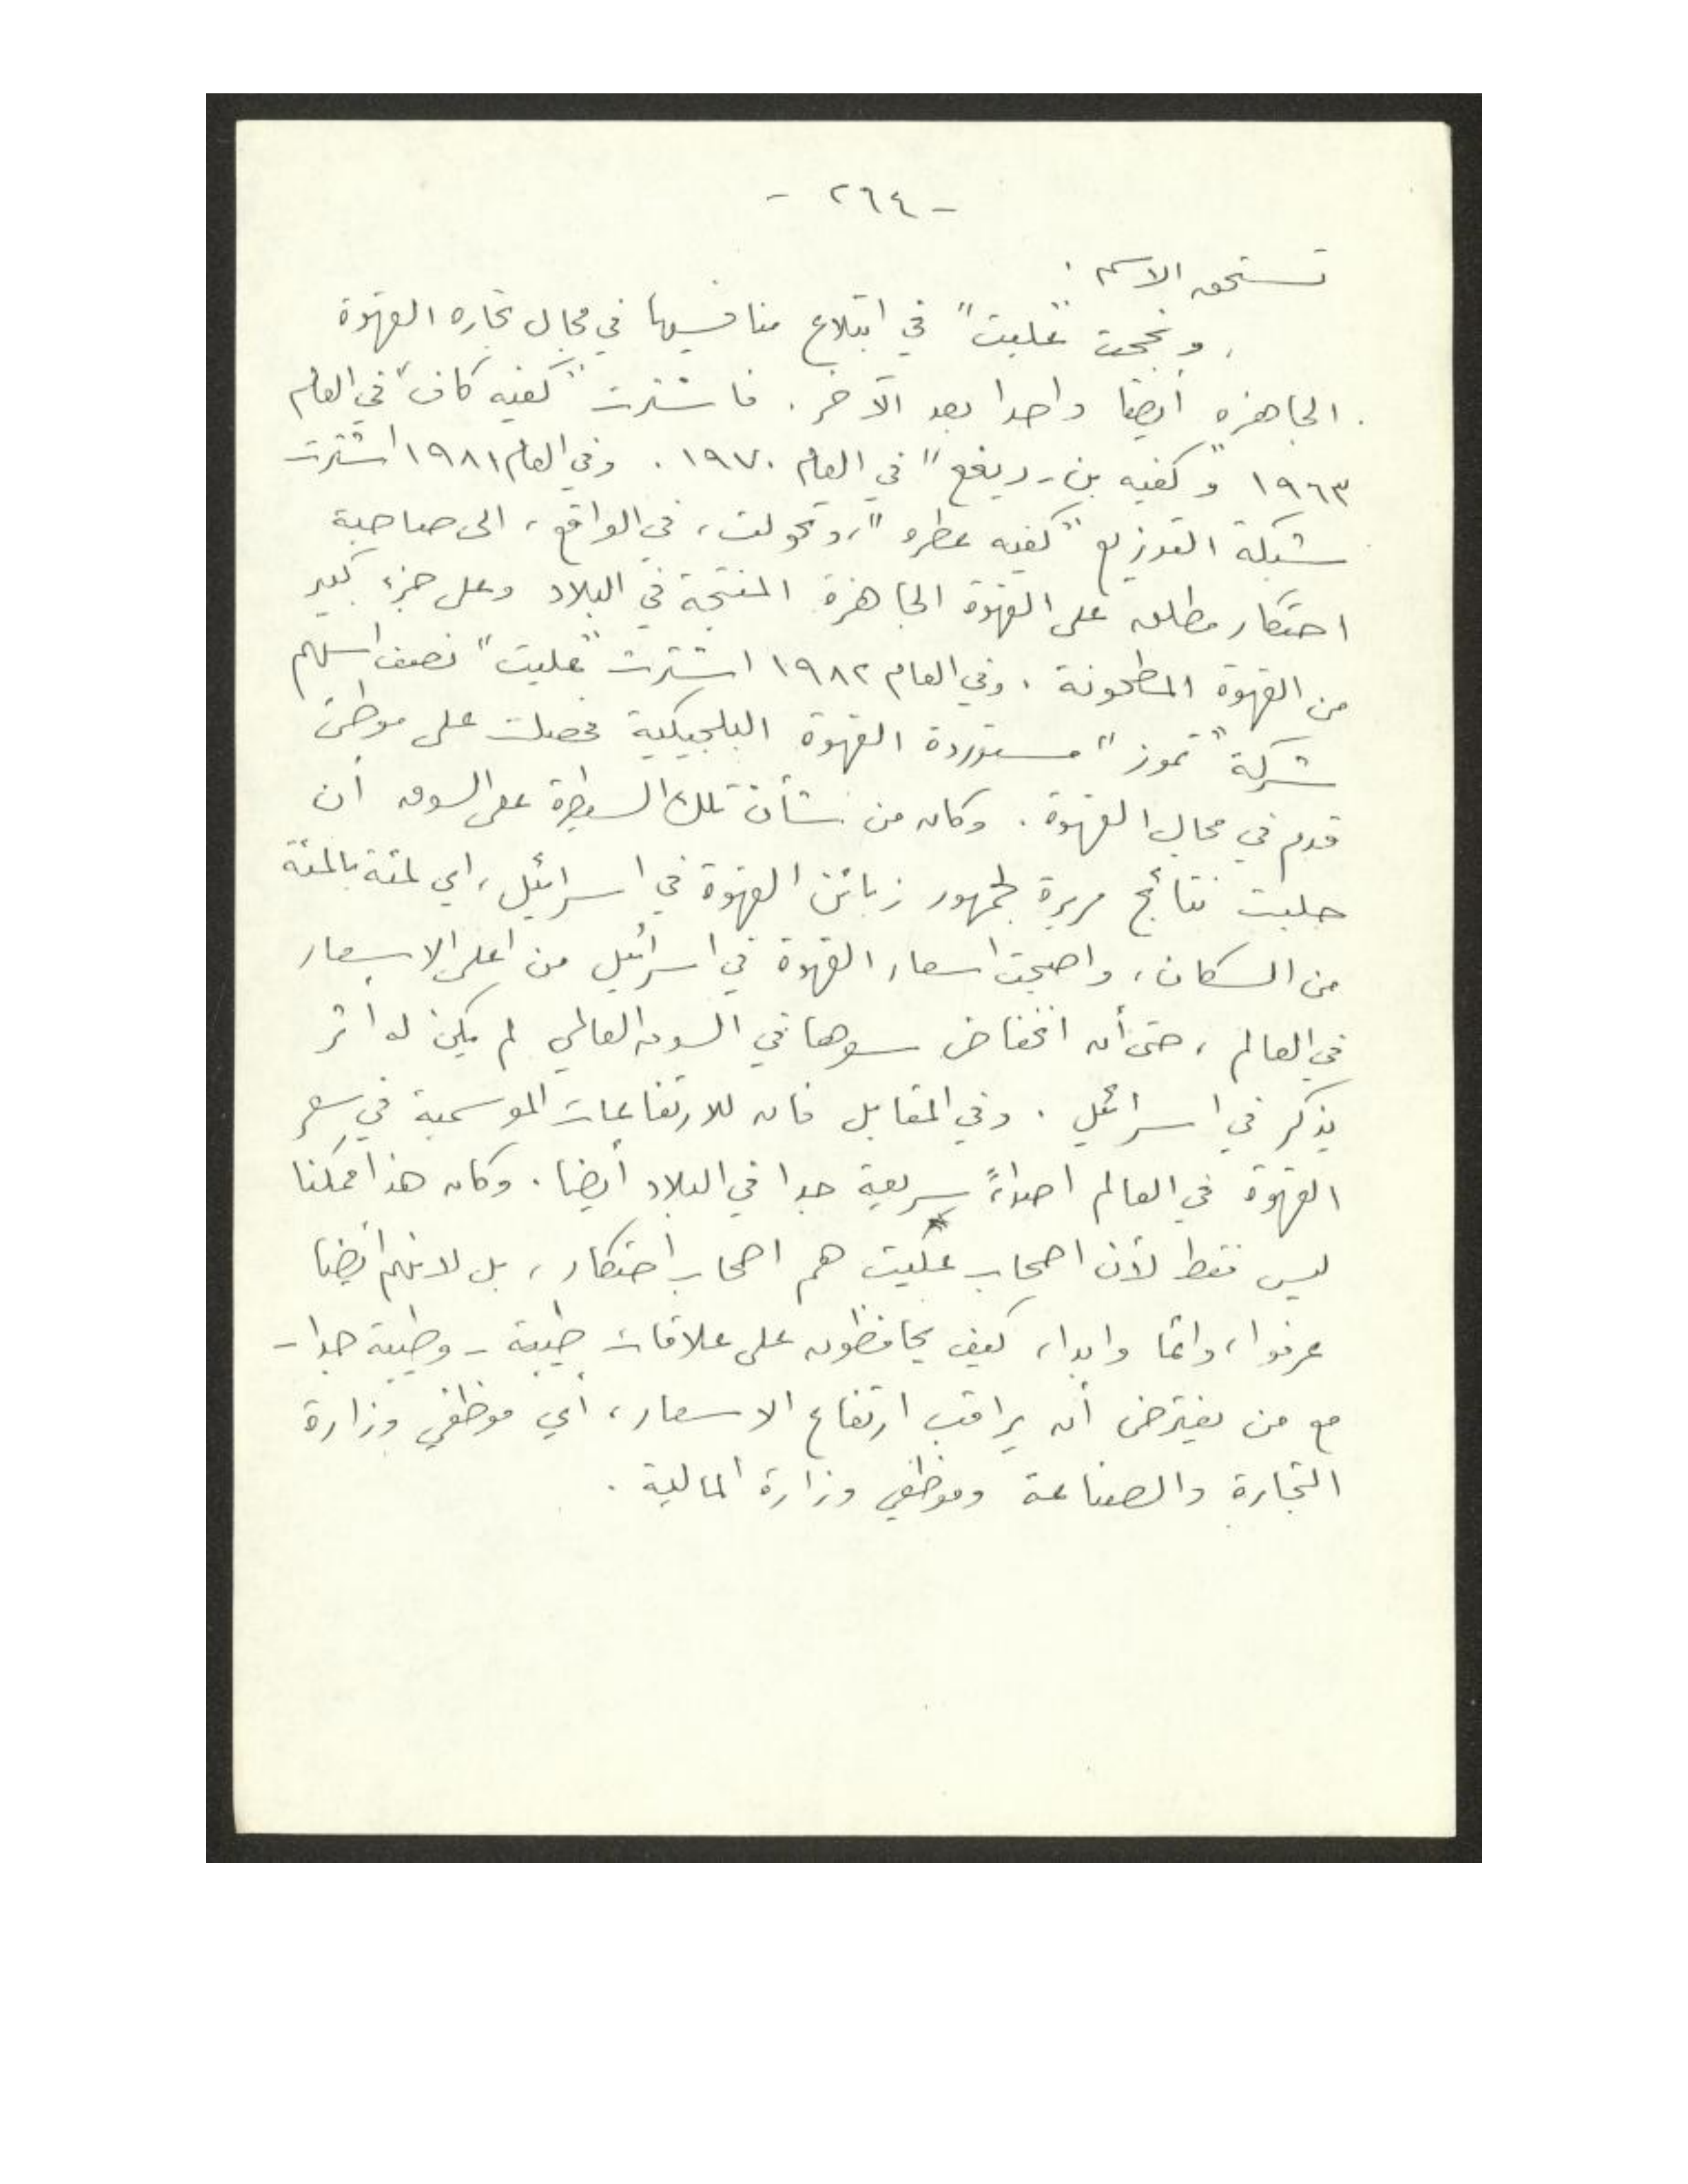 - ٢٦٤ -
تستحق الاسم .
ونجحت "عليت" في ابتلاع منافسيها في مجال تجاره القهوة
الجاهزه أيضا واحدا بعد الآخر . فاشترت "كفيه كاف" في العام
١٩٦٣ و"كفيه بن - ريفع" في العام ١٩٧٠ . وفي العام ١٩٨١ اشترت
شبكة التوزيع "كفيه عطره" ، وتحولت ، في الواقع ، الى صاحبة
احتكار مطلق على القهوة الجاهزة المنتجة في البلاد وعلى جزء كبير
من القهوة المطحونة . وفي العام ١٩٨٢ اشترت "عليت" نصف اسهم
شركة "تموز" مستوردة القهوة البلجيكية فحصلت على موطئ
قدم في مجال القهوة . وكان من شأن تلك السيطرة على السوق أن
جلبت نتائج مريرة لجمهور زبائن القهوة في اسرائيل ، اي لمئة بالمئة
من السكان ، واصبحت اسعار القهوة في اسرائيل من اعلى الاسعار
في العالم ، حتى أن انخفاض سعرها في السوق العالمي لم يكن له اثر
يذكر في اسرائيل . وفي المقابل فان للارتفاعات الموسمية في سعر
القهوة في العالم اصداءً سريعة جدا في البلاد أيضا . وكان هذا ممكنا
ليس فقط لأن اصحاب عليت هم اصحاب احتكار ، بل لانهم أيضا
عرفوا ، دائما وابدا ، كيف يحافظون على علاقات طيبة - وطيبة جدا -
مع من يفترض أن يراقب ارتفاع الاسعار ، أي موظفي وزارة
التجارة والصناعة وموظفي وزارة المالية .